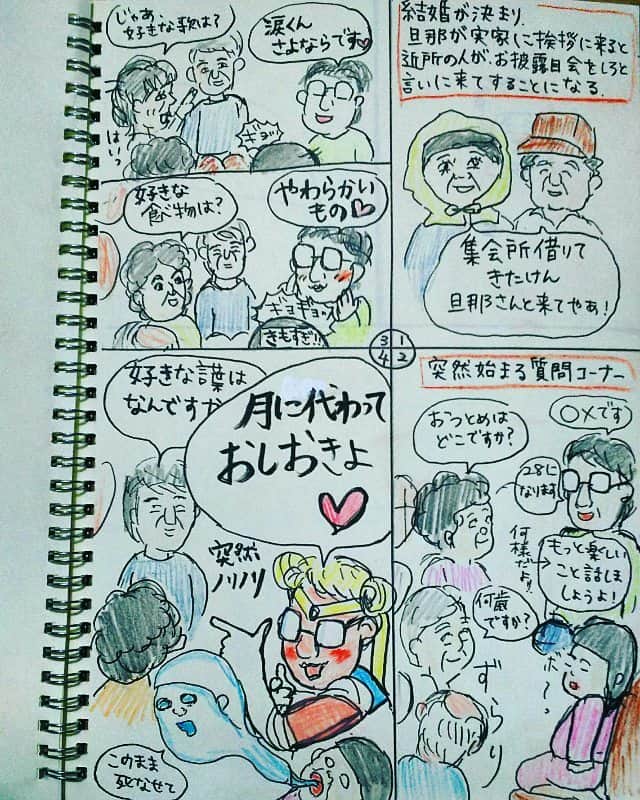 結婚が決まり、
旦那が実家に挨拶に来ると
近所の人が、お披露目会をしろと
言いに来てすることになる。
集会所借りて
きたけん
旦那さんと来てやあ!
突然始まる質問コーナー
おつとめは
どこですか?
〇×です
28に
なります
何歳
ですか?
もっと楽しい
こと話しま
しょうよ!
何様だよ!!
ずらり
ボーーっ
じゃあ、
好きな歌は?
涙くん
さよならです♡
はいっ
ギョッ
好きな
食べ物は?
やわらかい
もの♡
ギョギョッ
きもすぎ!!
3 1
4 2
好きな言葉は
なんですか
月に代わって
おしおきよ
♡
突然
ノリノリ
このまま
死なせて